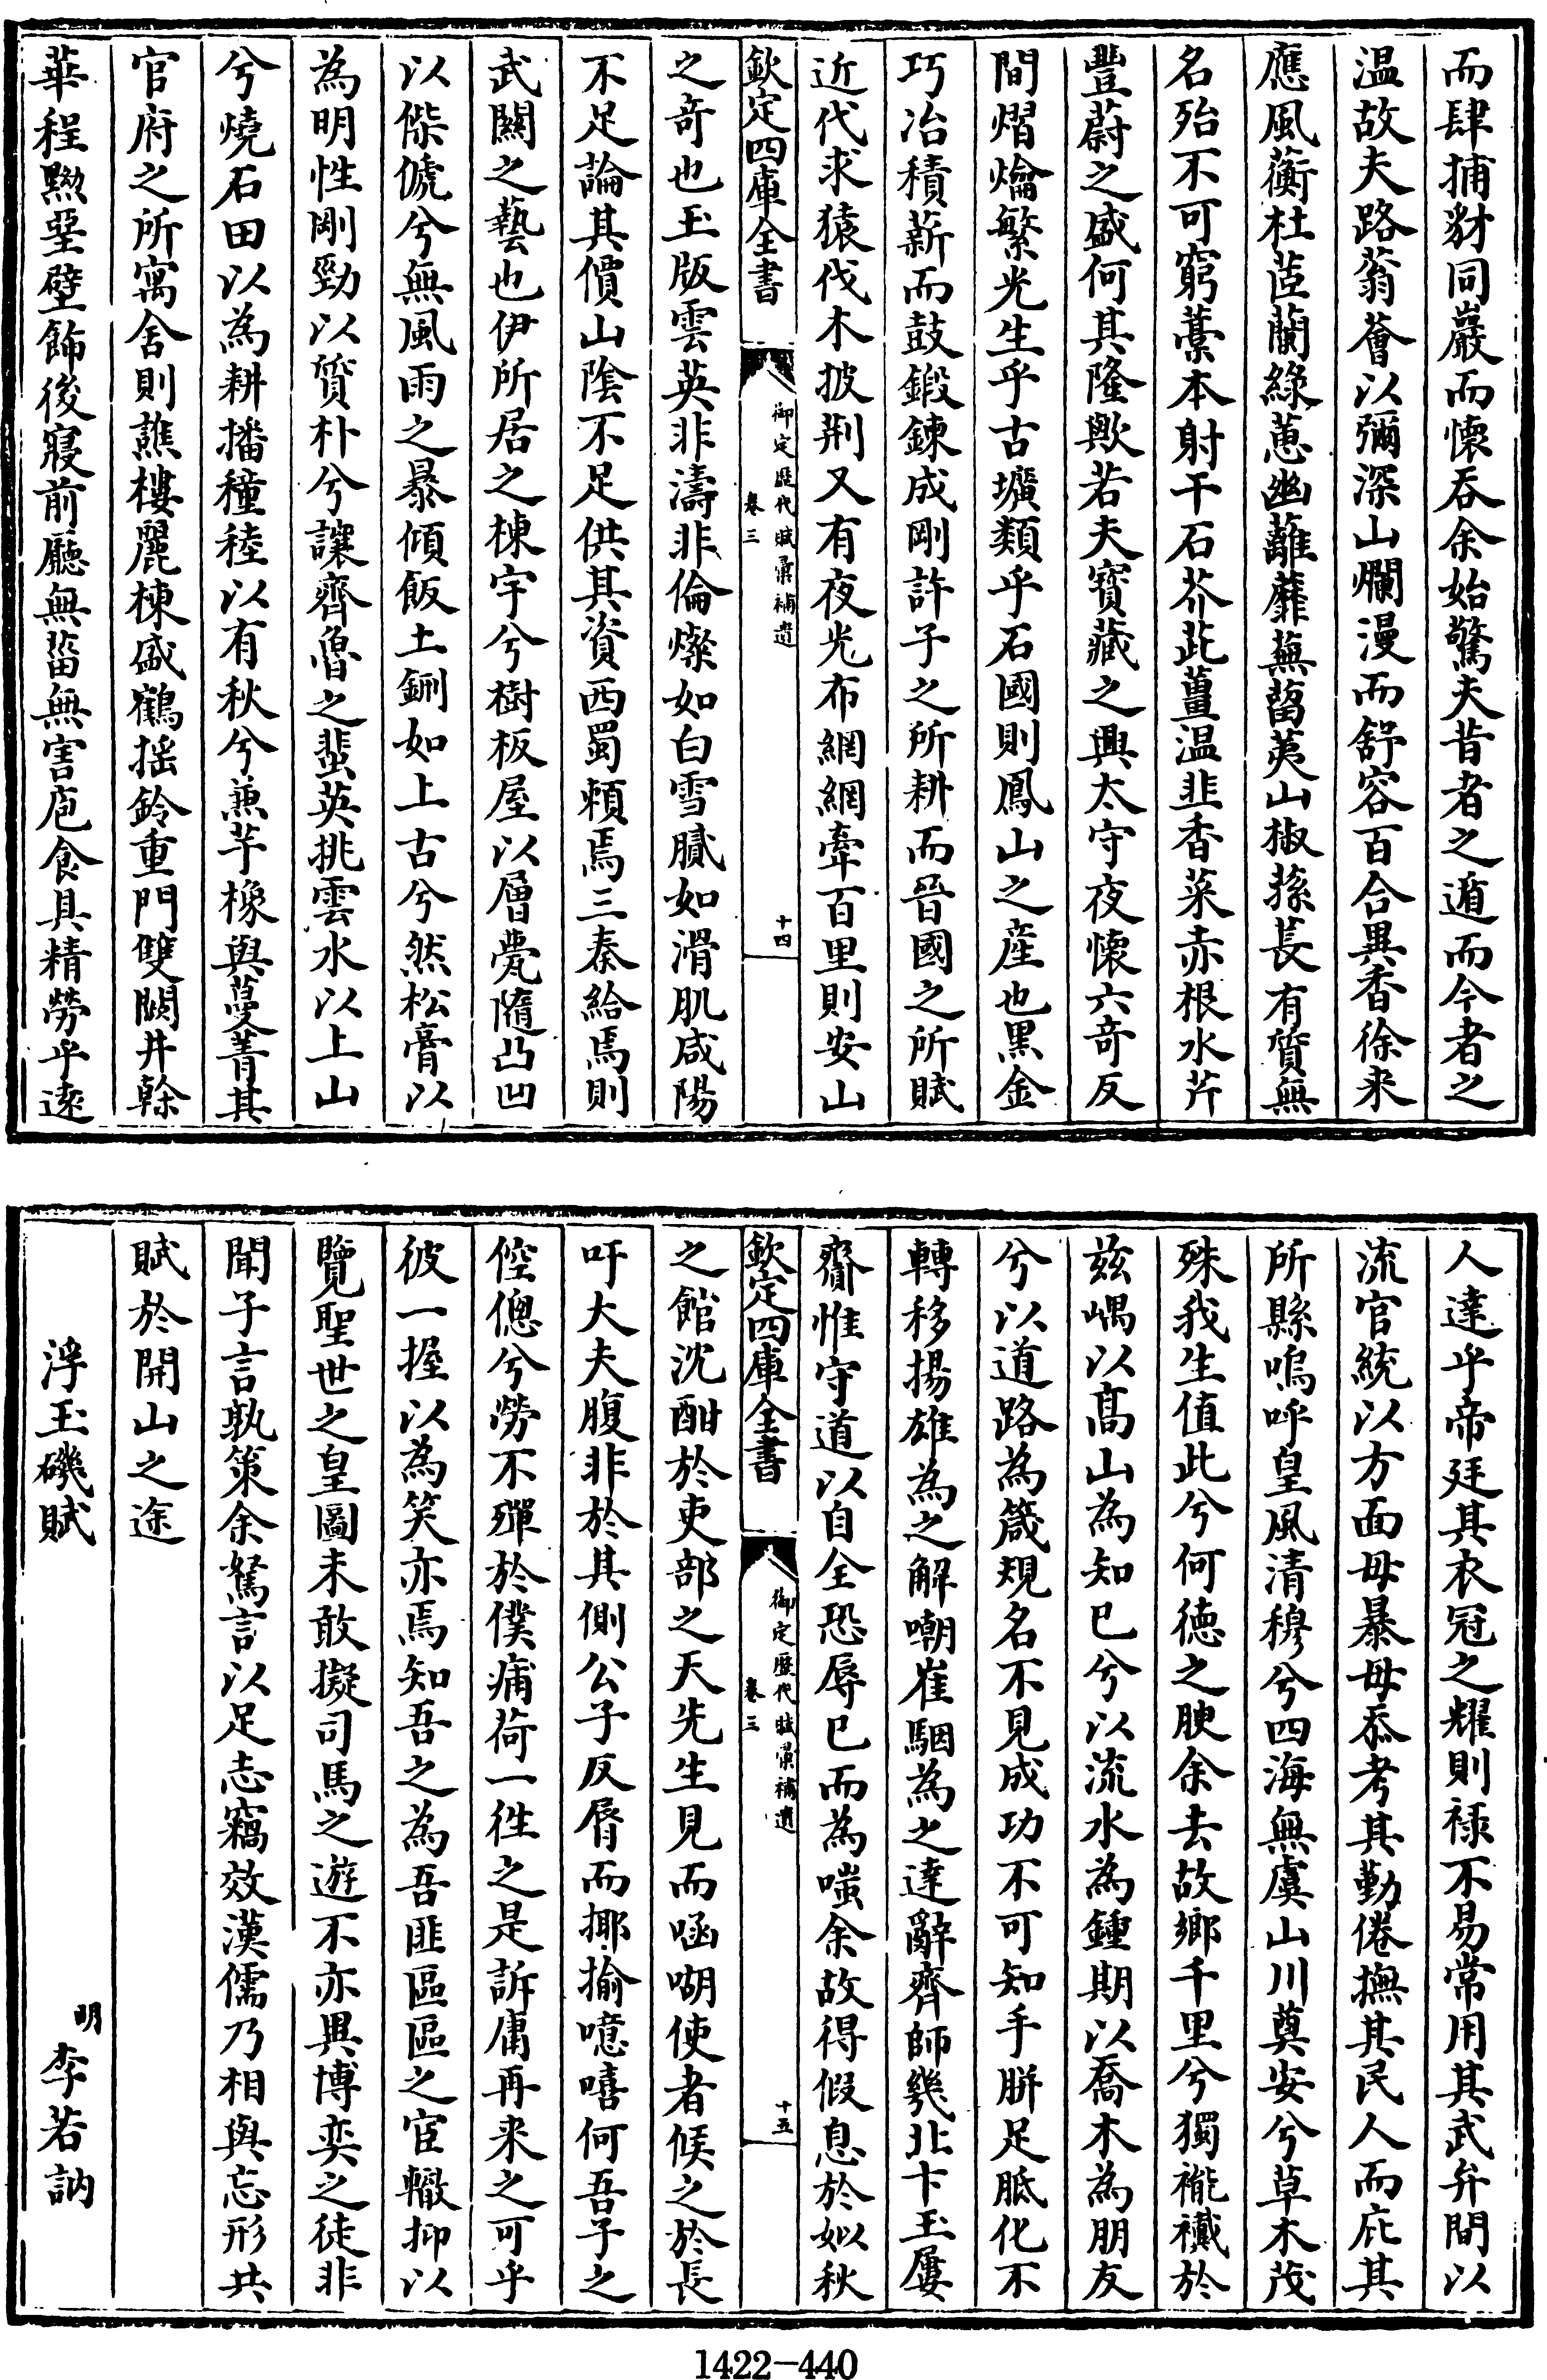 而肆捕豺同巖而懷吞余始驚夫昔者之遁而今者之
温故夫路蓊薈以彌深山爛漫而舒容百合異香徐来
應風蘅杜茝蘭綠蔥幽蘺蘼蕪菖荑山椒蓀長有質無
名殆不可窮藁本射干石芥茈薑温韭香菜赤根水芹
豐蔚之盛何其隆歟若夫寳藏之興太守夜懷六竒反
間熠爚繁光生乎古壙類乎石國則鳳山之産也黒金
巧冶積薪而鼓鍛鍊成剛許子之所耕而晉國之所賦
近代求猿伐木披荆又有夜光布網網牽百里則安山
欽定四庫全書
御定歴代賦彙補遺
卷三
十四
之竒也玉版雲英非濤非倫燦如白雪膩如滑肌咸陽
不足論其價山陰不足供其資西蜀頼焉三秦給焉則
武闗之藝也伊所居之棟宇兮樹板屋以層甍隨凸凹
以傑傂兮無風雨之暴傾飯土鉶如上古兮然松膏以
為明性剛勁以質朴兮讓齊魯之蜚英挑雲水以上山
兮燒石田以為耕播穜稑以有秋兮蒸芋橡與蔓菁其
官府之所寓舍則譙樓麗棟盛鶴揺鈴重門雙闕井榦
華程黝堊壁飾後寢前廳無菑無害庖食具精勞乎逺
人達乎帝廷其衣冠之耀則禄不易常用其武弁間以
流官統以方面毋暴毋忝考其勤倦撫其民人而庇其
所縣嗚呼皇風清穆兮四海無虞山川奠安兮草木茂
殊我生值此兮何德之腴余去故鄉千里兮獨襹褷於
兹嵎以髙山為知已兮以流水為鍾期以喬木為朋友
兮以道路為箴規名不見成功不可知手胼足胝化不
轉移揚雄為之解嘲崔駰為之達辭齊師幾北卞玉屢
齎惟守道以自全恐辱已而為嗤余故得假息於姒秋
欽定四庫全書
御定歴代賦彙補遺
卷三
十五
之館沈酣於吏部之天先生見而㖤㗅使者候之於長
吁大夫腹非於其側公子反脣而揶揄噫嘻何吾子之
倥傯兮勞不殫於僕痡荷一徃之是訴庸再来之可乎
彼一握以為笑亦焉知吾之為吾匪區區之宦轍抑以
覽聖世之皇圖未敢擬司馬之遊不亦異博奕之徒非
聞子言孰策余駑言以足志竊效漢儒乃相與忘形共
賦於開山之途
浮玉磯賦
明李若訥
1422-440